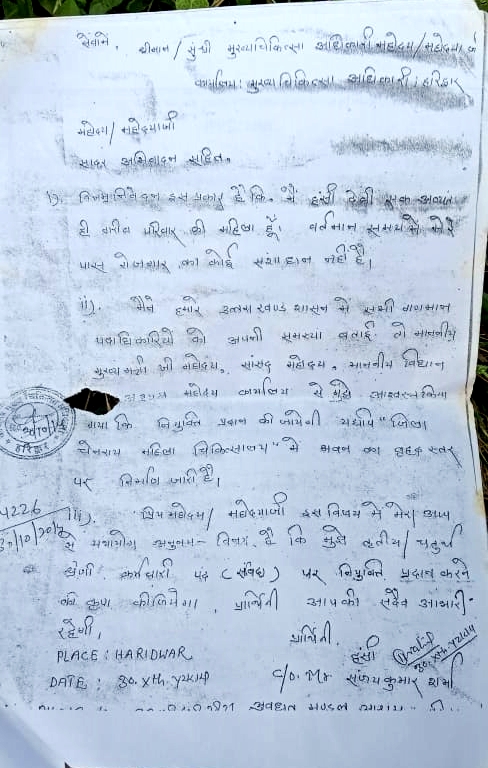 सेवामें, श्रीमान / सुश्री मुख्यचिकित्सा अधिकारी महोदय / महोदया जी
कार्यालय: मुख्य चिकित्सा अधिकारी; हरिद्वार
महोदय / महोदयाजी
सादर अभिवादन सहित,
i). विनम्र निवेदन इस प्रकार है कि, मैं हंसी देवी एक अत्यंत
ही गरीब परिवार की महिला हूँ। वर्तमान समय में मेरे
पास रोजगार का कोई संशाधन नहीं है।
ii). मैंने हमारे उत्तराखण्ड शासन में सभी गणमान
पदाधिकारियों को अपनी समस्या बताई तो माननीय
मुख्यमंत्री जी महोदय, सांसद महोदय, माननीय विधान
महोदय कार्यालय से मुझे आश्वस्त किया
गया कि नियुक्ति प्रदान की जायेगी यद्यपि "जिला
चैनराय महिला चिकित्सालय" में भवन का वृहद स्तर
पर निर्माण जारी है।
4226
iii). प्रिय महोदय / महोदयाजी इस विषय में मेरा आप
से अनुनय-विनय है कि मुझे तृतीय / चतुर्थ
श्रेणी कर्मचारी पद (संविदा) पर नियुक्ति प्रदान करने
की कृपा कीजियेगा, प्रार्थिनी आपकी सदैव आभारी
रहेगी,
प्रार्थिनी
PLACE: HARIDWAR हंसी
DATE: 30. Xth. C/O. Mr संजय कुमार शर्मा